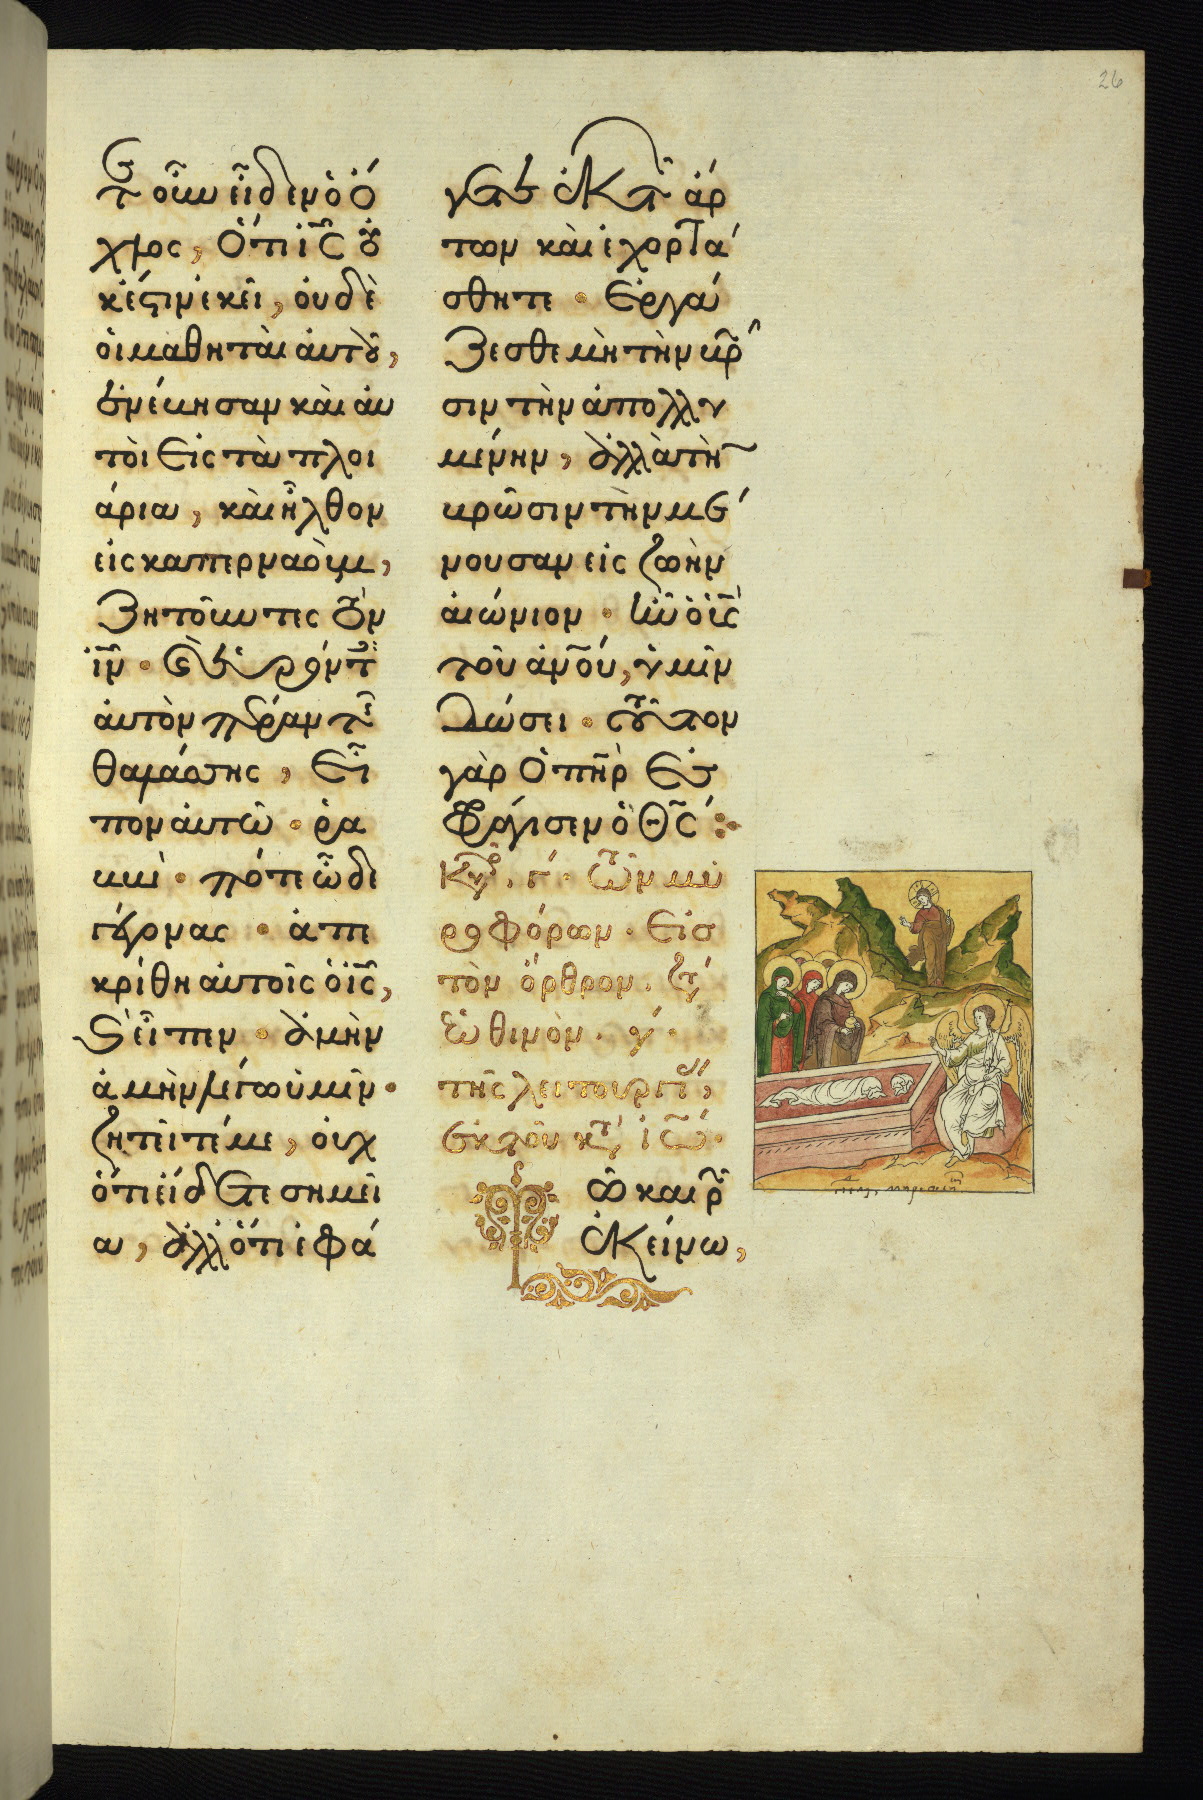 26
ὅτε οὖν εἶδεν ὁ ὄ
χλος, ὅτι ἰς οὐ
κ ἔστιν ἐκεῖ, οὐδὲ
οἱ μαθηταὶ αὐτοῦ,
ἐνέβησαν καὶ αὐ
τοὶ εἰς τὰ πλοι
άρια, καὶ ἦλθον
εἰς καπερναοὺμ,
ζητοῦντες τὸν
ἰν · καὶ εὑρόντες
αὐτὸν πέραν τῆς
θαλάσσης, εἶ
πον αὐτῶ · ῥα
ββὶ · πότε ὧδε
γέγονας · ἀπε
κρίθη αὐτοῖς ὁ ἰς,
καὶ εἶπεν · ἀμὴν
ἀμὴν λέγω ὑμῖν ·
ζητεῖτέ με, οὐχ
ὅτι εἴδετε σημεῖ
α, ἀλλ' ὅτι ἐφά
γετε ἐκ τῶν ἄρ
των καὶ ἐχορτά
σθητε · ἐργά
ζεσθε μὴ τὴν βρῶ
σιν τὴν ἀπολλυ
μένην, ἀλλὰ τὴν
βρῶσιν τὴν μέ
νουσαν εἰς ζωὴν
αἰώνιον · ἣν ὁ υἱὸς
τοῦ ἀνου, ὑμῖν
δώσει · τοῦτον
γὰρ ὁ πηρ ἐσ
φράγισεν ὁ θς
Κυριακῇ γ · τῶν μυ
ροφόρων · εἰς
τὸν ὄρθρον ·
ἑωθινὸν · γ ·
τῆς λειτουργίας,
ἐκ τοῦ κατὰ ἰω ·
Τῶ καιρῶ
ἐκείνω,